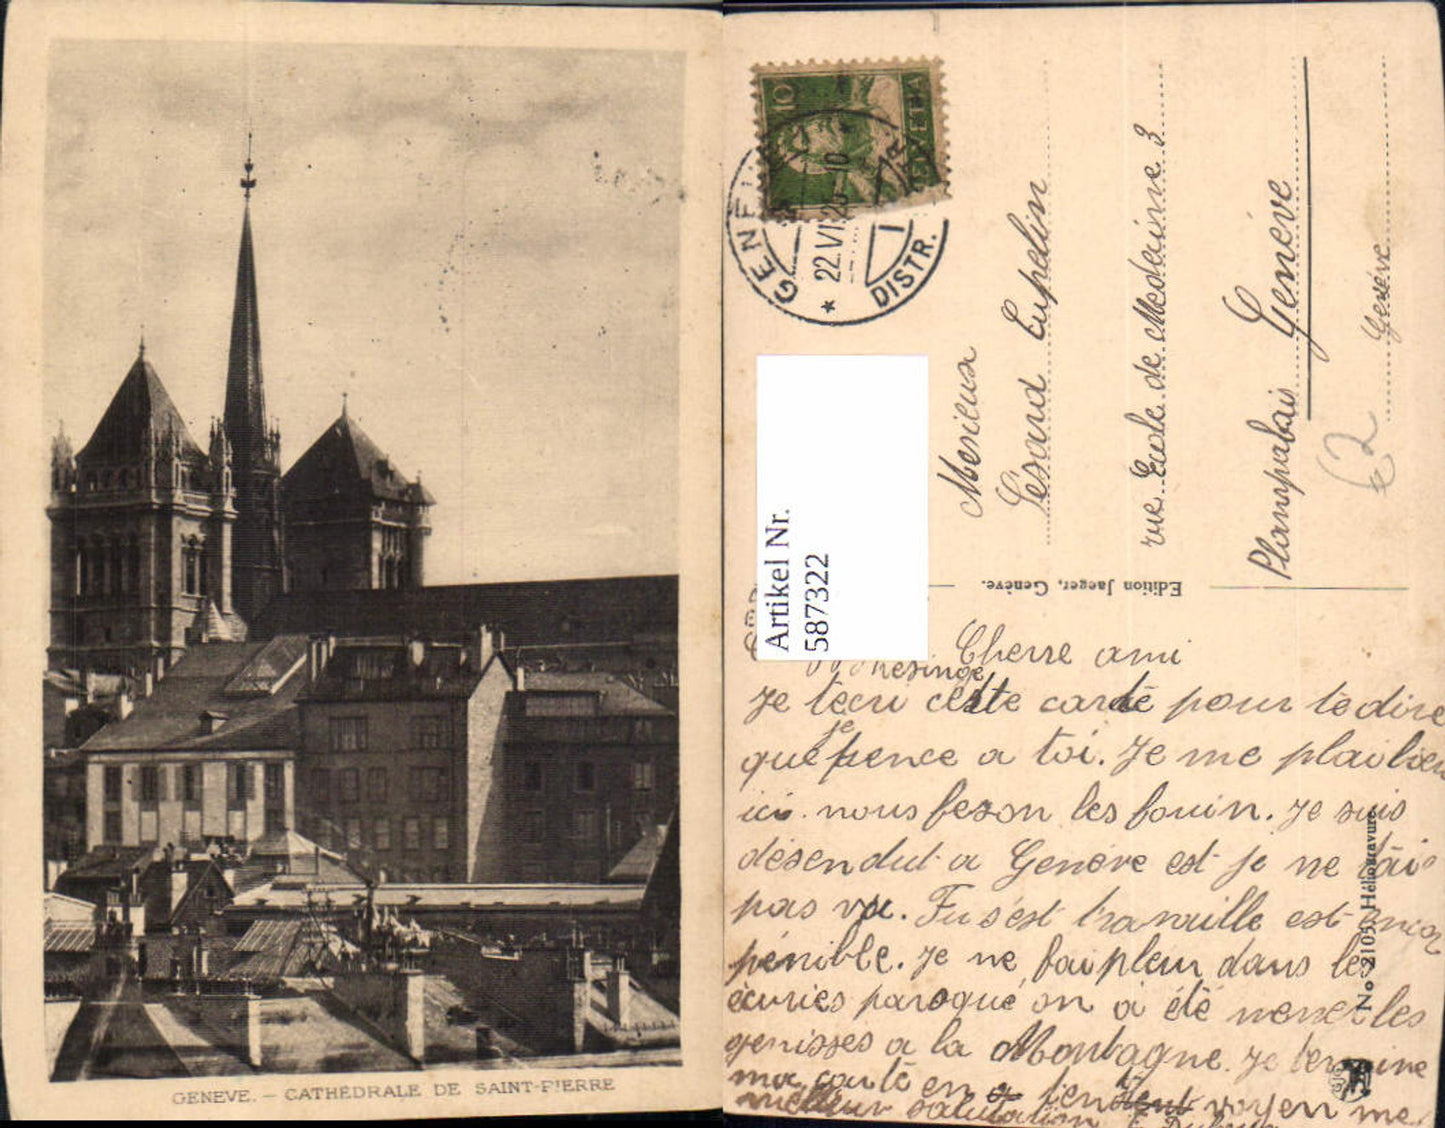 GENÈVE. – CATHÉDRALE DE SAINT-PIERRE
10
HELVETIA
GENÈVE
22.VI.
10
I
DISTR.
Artikel Nr.
587322
Mosieux
Césard Cupelin
rue Ecole de Medeinne 3
Plampalais Genéve
Genéve
Edition Jaeger, Genève.
No 2105 Héliogravure
Cherre ami
Je técri cette carte pour te dire
que je pence a toi. Je me plai bien
ici nous feson les fouin. Je suis
désendut a Genéve est je ne tai
pas vu. Tu s'est travaille est encor
pénible. Je ne fai plem dans les
écuries paroque on a été mener les
genisses a la Montagne. Je termine
ma carte en t'en voyen me
meilleur salutation